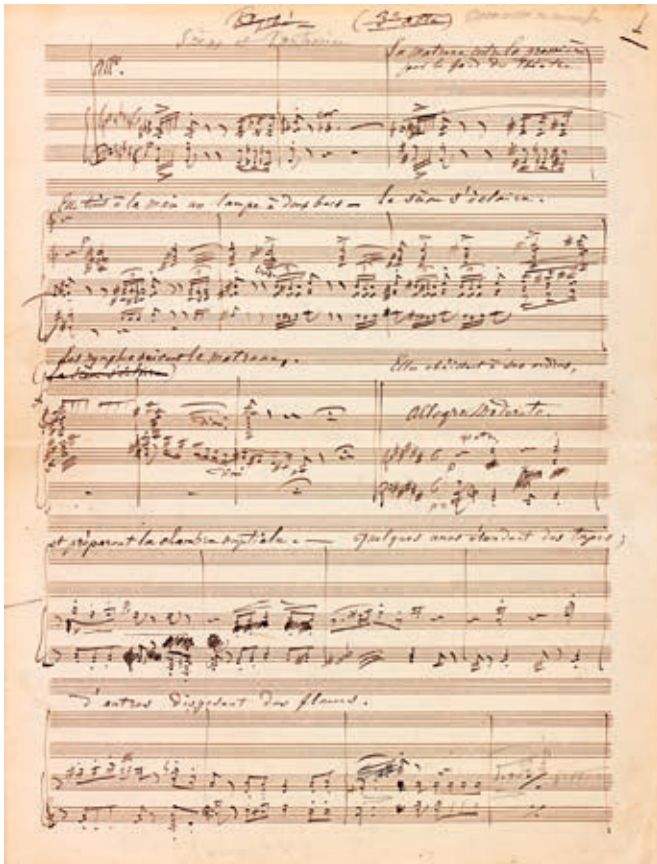 (3e acte)
1
Scène et
All°.
La matrone entre la première
par le fond du théâtre
la main une lampe à deux becs — la scène s'éclaire.
Les nymphes suivent la matrone.
Elles obéissent à ses ordres,
(La scène s'éclaire)
Allegro Moderato.
dim:
dim:
p
et préparent la chambre nuptiale. — Quelques unes étendent des tapis;
d'autres disposent des fleurs.